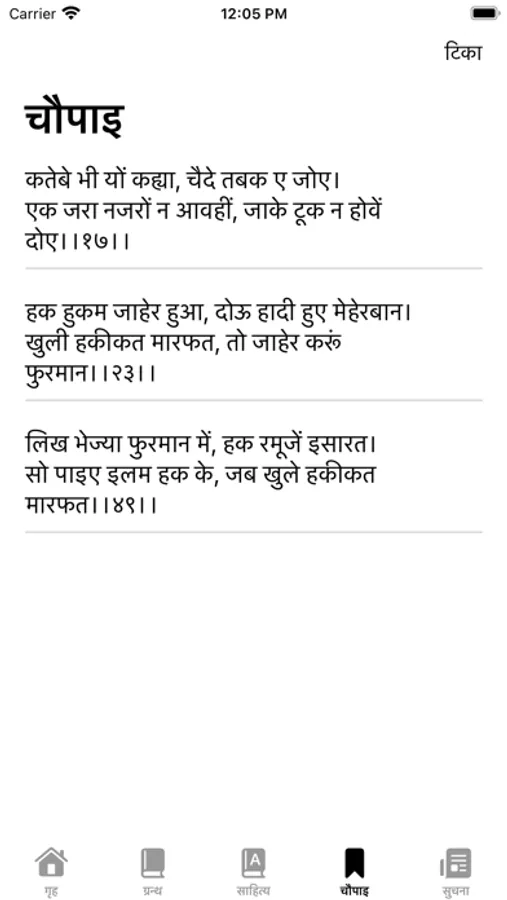 Carrier 12:05 PM
टिका
चौपाइ
कतेबे भी यों कह्या, चैदे तबक ए जोए।
एक जरा नजरों न आवहीं, जाके टूक न होवें
दोए।।१७।।
हक हुकम जाहेर हुआ, दोऊ हादी हुए मेहेरबान।
खुली हकीकत मारफत, तो जाहेर करूं
फुरमान।।२३।।
लिख भेज्या फुरमान में, हक रमूजें इसारत।
सो पाइए इलम हक के, जब खुले हकीकत
मारफत।।४९।।
गृह ग्रन्थ साहित्य चौपाइ सुचना